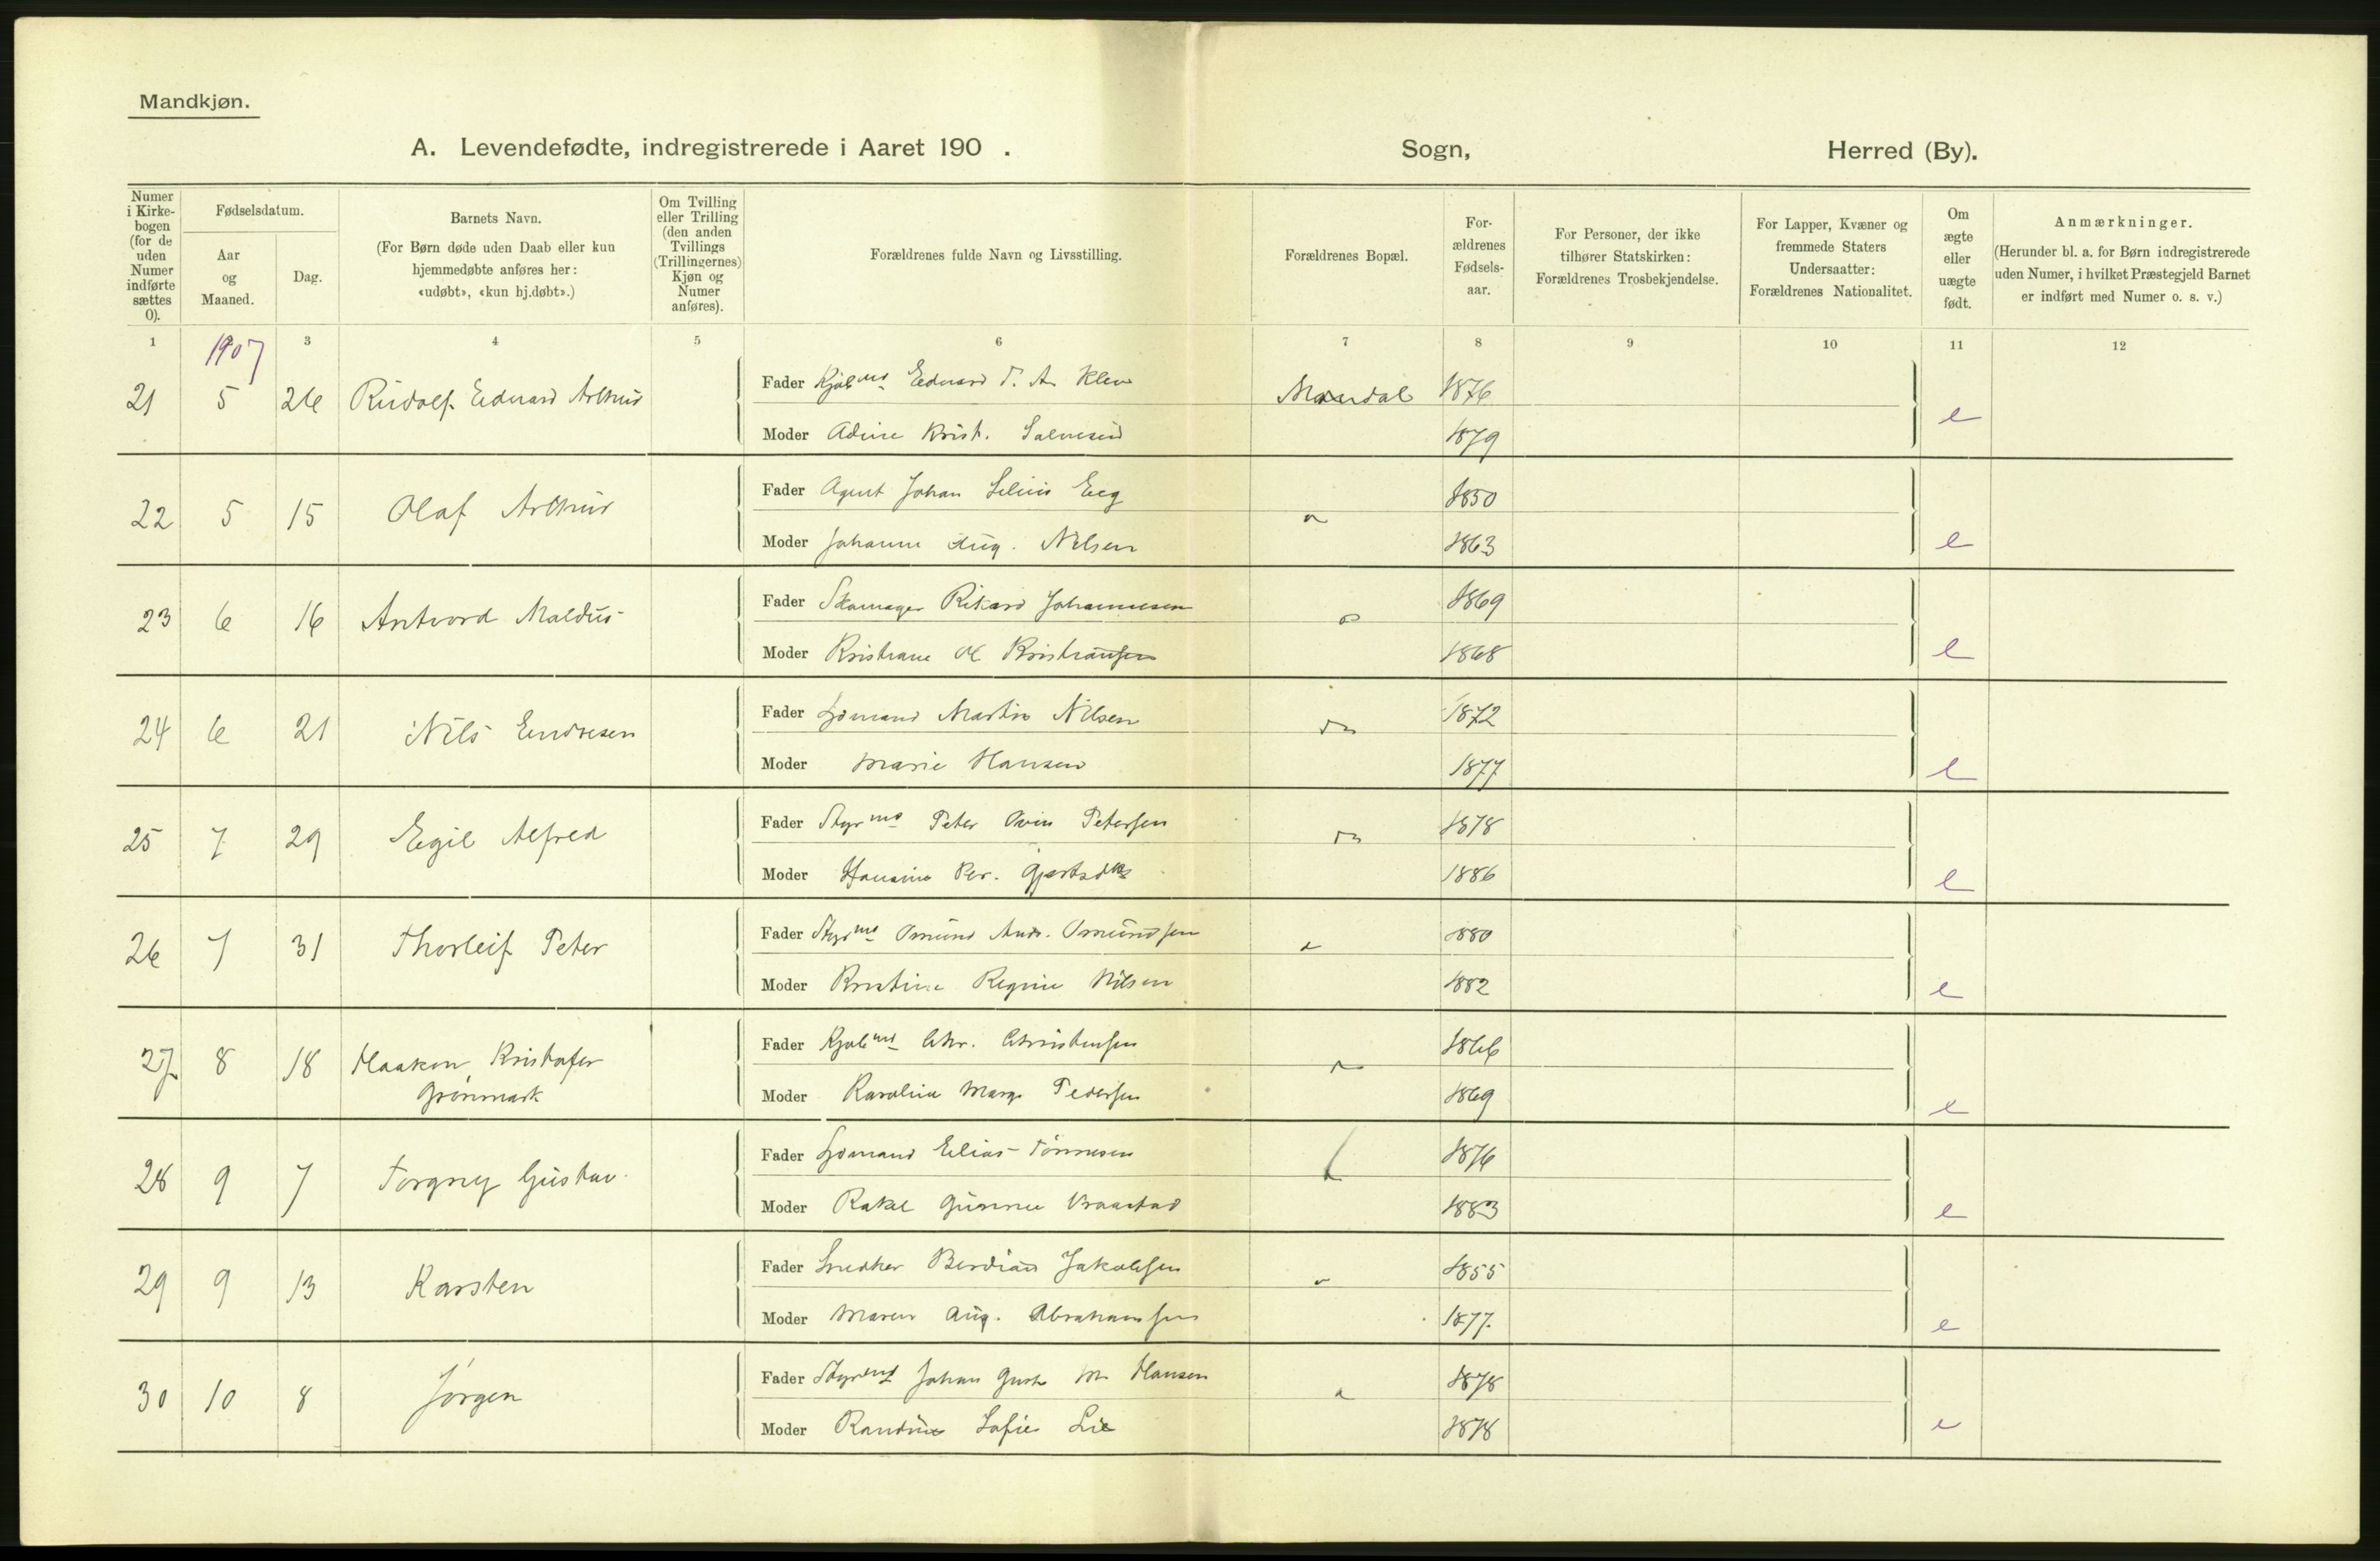 Mandkjøn.
A. Levendefødte, indregistrerede i Aaret 190 . Sogn, Herred (By).
Numer i Kirke-bogen (for de uden Numer indførte sættes 0).
Fødselsdatum.
Aar og Maaned.
Dag.
Barnets Navn.
(For Børn døde uden Daab eller kun hjemmedøbte anføres her: «udøbt», «kun hj.døbt».)
Om Tvilling eller Trilling (den anden Tvillings (Trillingernes) Kjøn og Numer anføres).
Forældrenes fulde Navn og Livsstilling.
Forældrenes Bopæl.
For-ældrenes Fødsels-aar.
For Personer, der ikke tilhører Statskirken: Forældrenes Trosbekjendelse.
For Lapper, Kvæner og fremmede Staters Undersaatter: Forældrenes Nationalitet.
Om ægte eller uægte født.
Anmærkninger.
(Herunder bl. a. for Børn indregistrerede uden Numer, i hvilket Præstegjeld Barnet er indført med Numer o. s. v.)
1 3 4 5 6 7 8 9 10 11 12
1907
21 5 26 Rudolf Edvard Arthur Fader Edvard T. A. Klev Mandal 1876
Moder Adine Krist. Salvesen 1879 e
22 5 15 Olaf Arthur Fader Agent Johan Eeg 1850
Moder Johanne Aug. Nilsen 1863 e
23 6 16 Antvord Maldus Fader Skomager Rikard Johannesen 1869
Moder Kristiane M Kristiansen 1868 e
24 6 21 Nils Endresen Fader Sjømand Martin Nilsen 1872
Moder Marie Hansen 1877 e
25 7 29 Egil Alfred Fader Styrmd Peter Petersen 1878
Moder 1886 e
26 7 31 Thorleif Peter Fader Styrmd Omund Andr. Omundsen 1880
Moder Kristine Regine Nilsen 1882 e
27 8 18 Haakon Kristofer Fader Chr. Christensen 1866
Grønmark
Moder Karoline Marg Pedersen 1869 e
28 9 7 Torgny Gustav Fader Sjømand Elias Tønnesen 1876
Moder Rakel Gunnee 1883 e
29 9 13 Karsten Fader Snedker Berdian Jakobsen 1855
Moder Maren Aug. Abrahamsen 1877 e
30 10 8 Jørgen Fader Styrmd Johan Gust M Hansen 1878
Moder Randine Sofie Lie 1878 e